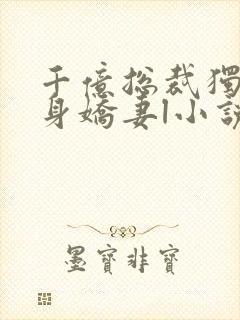 千億总裁獨
身嬌妻|小説
墨寶非寶